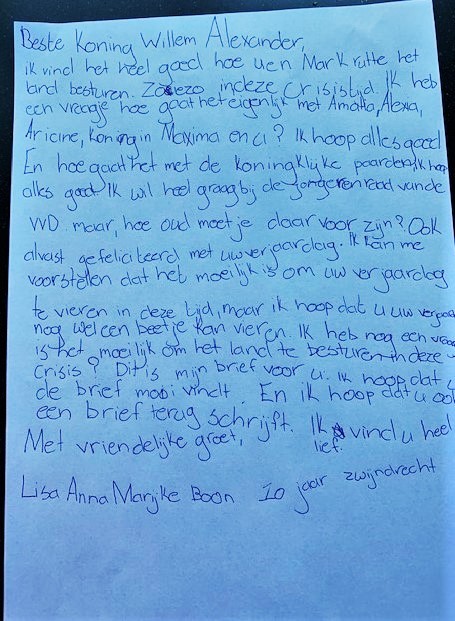 Beste Koning Willem Alexander,
ik vind het heel goed hoe u en Mark rutte het
land besturen. Zo in deze Crisistijd. Ik heb
een vraagje hoe gaat het eigenlijk met Amalia, Alexia,
Aricine, Koningin Maxima en u? Ik hoop alles goed
En hoe gaat het met de koningklijke paarden, ik hoop
alles goed. Ik wil heel graag bij de jongerenraad van de
VVD maar, hoe oud moet je daar voor zijn? Ook
alvast gefeliciteerd met uw verjaardag. Ik kan me
voorstellen dat het moeilijk is om uw verjaardag
te vieren in deze tijd, maar ik hoop dat u uw verjaa
nog wel een beetje kan vieren. Ik heb nog een vraa
is het moeilijk om het land te besturen in deze
Crisis? Dit is mijn brief voor u. Ik hoop dat u
de brief mooi vindt. En ik hoop dat u ook
een brief terug schrijft. Ik vind u heel
lief.
Met vriendelijke groet,
Lisa Anna Marijke Boon 10 jaar zwijndrecht